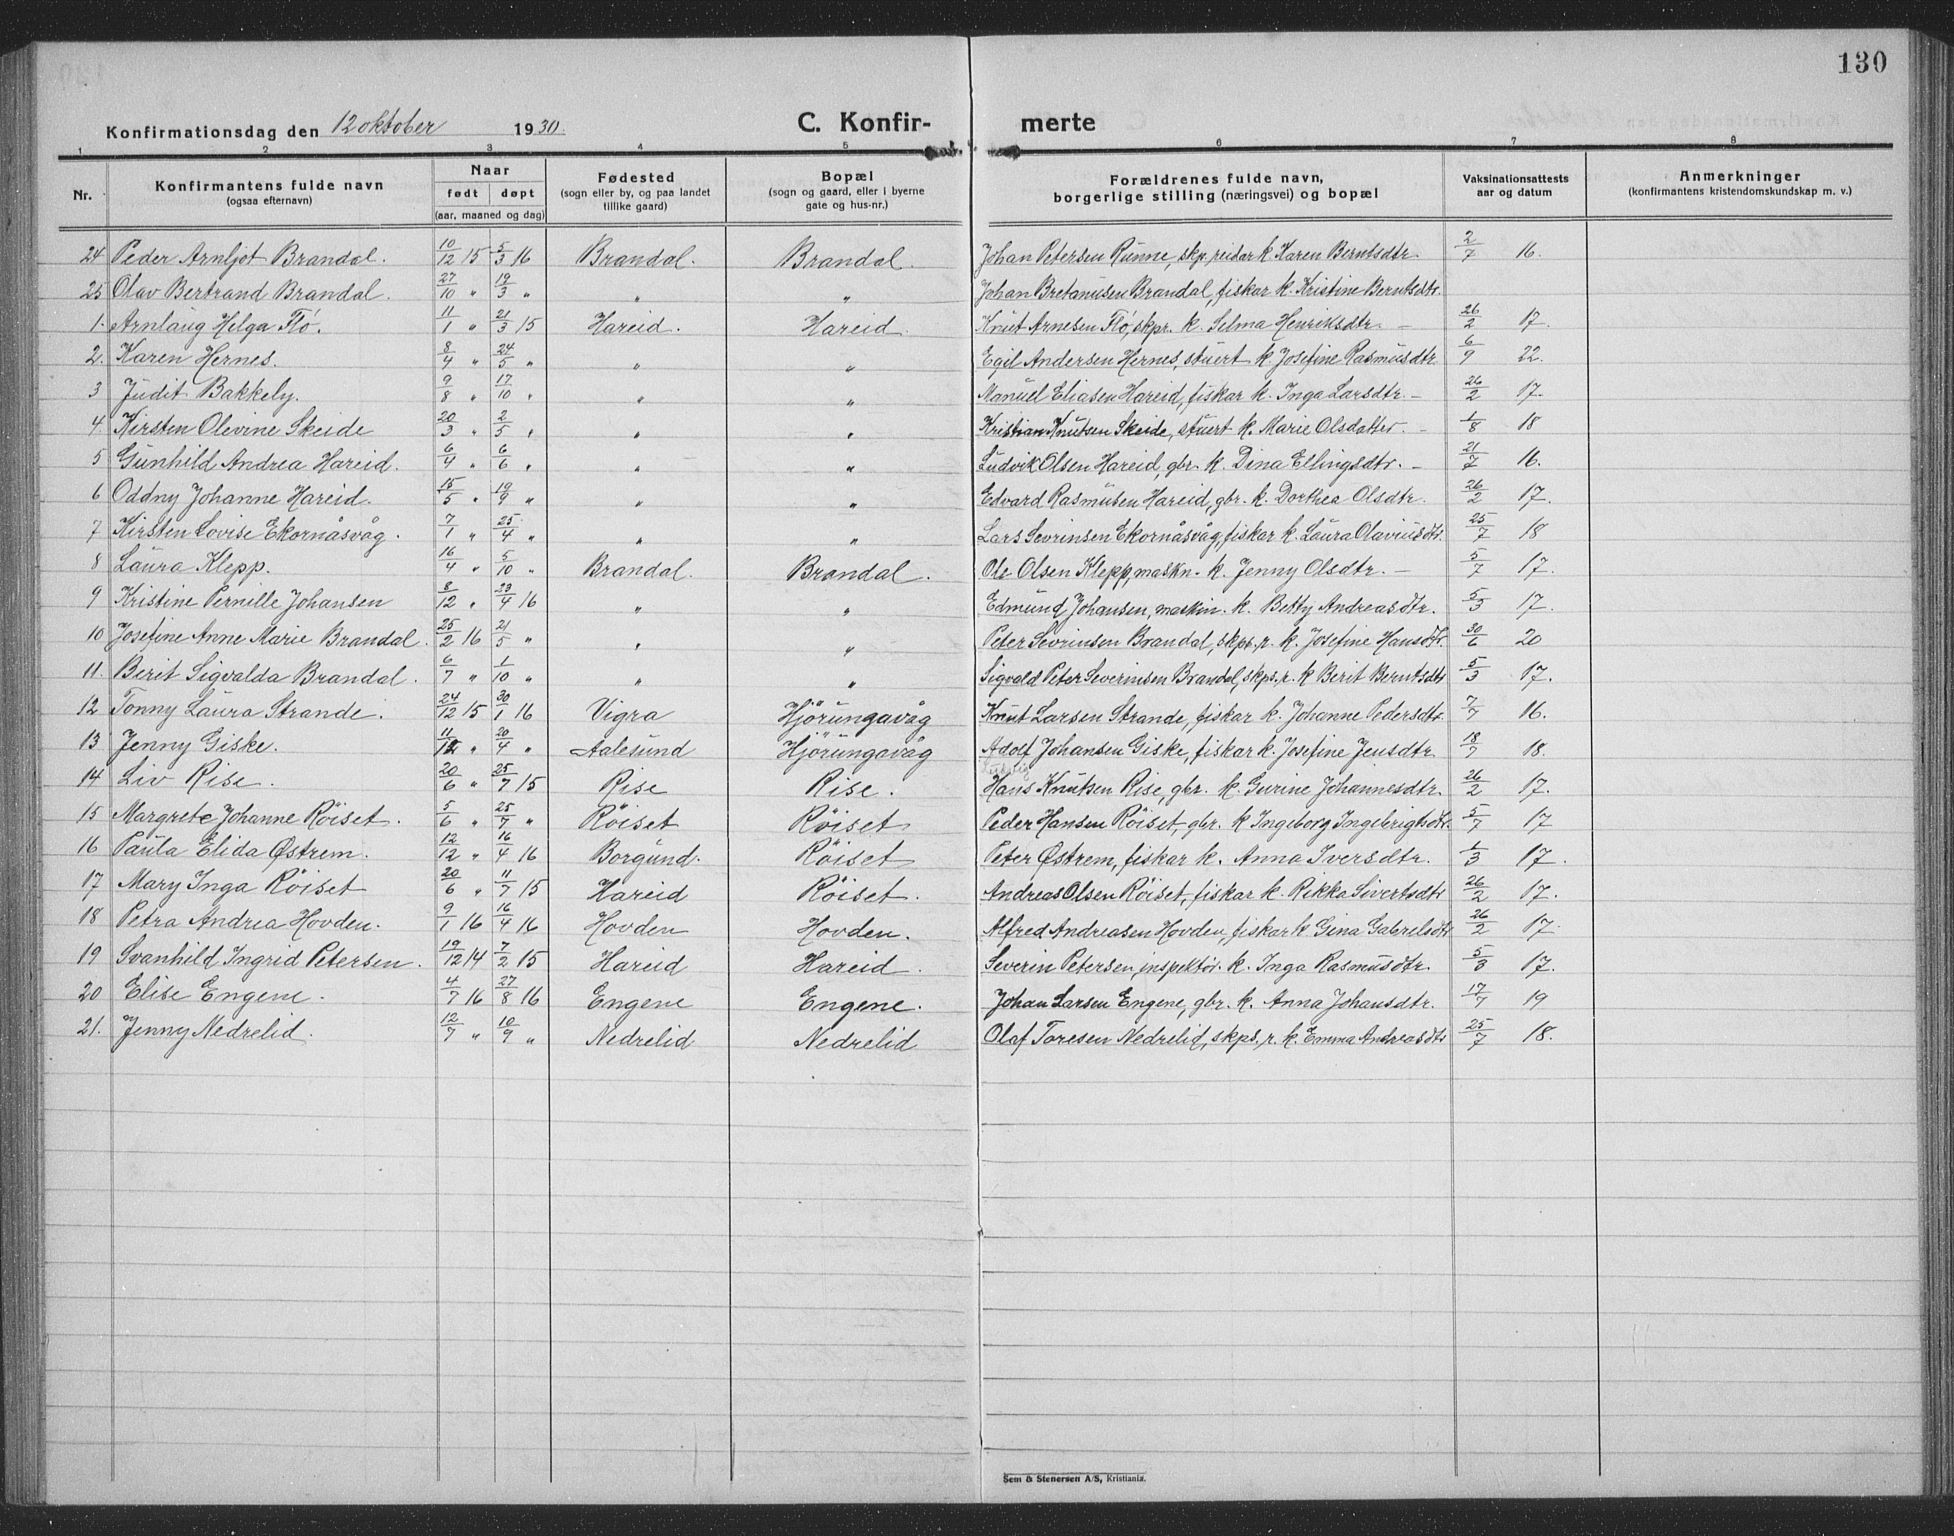 130
Konfirmationsdag den 12 oktober 1930. C. Konfir- merte
1 2 3 4 5 6 7 8
Nr. Konfirmantens fulde navn (ogsaa efternavn) Naar født døpt (aar, maaned og dag) Fødested (sogn eller by, og paa landet tillike gaard) Bopæl (sogn og gaard, eller i byerne gate og hus-nr.) Forældrenes fulde navn, borgerlige stilling (næringsvei) og bopæl Vaksinationsattests aar og datum Anmerkninger (konfirmantens kristendomskundskap m. v.)
24 Peder Arnljot Brandal. 10/12 15 5/3 16 Brandal. Brandal. Johan Petersen Runne, skp. reidar k. Karen Berntsdtr. 2/7 16.
25 Olav Bertrand Brandal. 27/10 " 19/3 " " " Johan Bretanusen Brandal, fiskar k. Kristine Berntsdtr.
1. Arnlaug Helga Flö. 11/1 " 21/3 15 Hareid. Hareid. Knut Arnesen Flö, skpr. k. Selma Henriksdtr. – 26/2 17.
2. Karen Hernes. 8/4 " 24/5 " " " Egil Andersen Hernes, stuert k. Josefine Rasmusdtr. 6/9 22.
3 Judit Bakkely. 9/8 " 17/10 " " " Manuel Eliasen Hareid, fiskar k. Inga Larsdtr. – 26/2 17.
4. Kirsten Olevine Skeide 20/3 " 2/5 " " " Kristian Knutsen Skeide, stuert k. Marie Olsdatter. – 1/8 18
5 Gunhild Andrea Hareid. 6/4 " 6/6 " " " Ludvik Olsen Hareid, gbr. k. Dina Ellingsdtr. – 21/7 16.
6 Oddny Johanne Hareid. 15/5 " 19/9 " " " Edvard Rasmusen Hareid, gbr. k. Dorthea Olsdtr. 26/2 17.
7 Kirsten Lovise Ekornåsvåg. 7/1 " 25/4 " " " Lars Sevrinsen Ekornåsvåg, fiskar k. Laura Olaviusdtr. 25/7 18
8 Laura Klepp. 16/4 " 5/10 " Brandal. Brandal. Ole Olsen Klepp, maskn. k. Jenny Olsdtr. – 5/7 17.
9 Kristine Pernille Johansen 8/12 " 23/4 16 " " Edmund Johansen, maskin. k. Betty Andreasdtr. 5/3 17.
10 Josefine Anne Marie Brandal. 25/2 16 21/5 " " " Peter Sevrinsen Brandal, skps. r. k. Josefine Hansdtr. 30/6 20
11. Berit Sigvalda Brandal. 6/7 " 1/10 " " " Sigvald Peter Severinsen Brandal, skps. r. k Berit Berntsdtr 5/3 17.
12 Tonny Laura Strande. 24/12 15 30/1 16 Vigra Hjörungavåg Knut Larsen Strande, fiskar k. Johanne Pedersdtr. 7/7 16.
13 Jenny Giske. 11/12 " 20/4 " Aalesund Hjörungavåg Adolf Johansen Giske, fiskar k. Josefine Jensdtr. 18/7 18.
14 Liv Rise. 20/6 " 25/7 15 Rise Rise. Hans Knutsen Rise, gbr. k. Gurine Johannesdtr. 26/2 17.
15 Margrete Johanne Röiset. 5/6 " 25/7 " Röiset Röiset Peder Hansen Röiset, gbr. k Ingeborg Ingebrigtsdtr. 5/7 17
16 Paula Elida Østrem. 12/12 " 16/4 16 Borgund. Röiset Peter Østrem, fiskar k. Anna Iversdtr. 1/3 17.
17 Mary Inga Röiset 20/6 " 11/7 15 Hareid Röiset. Andreas Olsen Röiset, fiskar k. Rikka Sivertsdtr 26/2 17.
18 Petra Andrea Hovden. 9/1 16 16/4 16 Hovden Hovden. Alfred Andreasen Hovden, fiskar k. Gina Gabrielsdtr 26/2 17.
19 Svanhild Ingrid Petersen. 19/12 14 7/2 15 Hareid Hareid. Severin Petersen, inspektör. k. Inga Rasmusdtr. 5/3 17.
20 Elise Engene. 4/7 16 27/8 16 Engene Engene. Johan Larsen Engene, gbr. k. Anna Johansdtr. 17/7 19
21. Jenny Nedrelid. 12/7 " 10/9 " Nedrelid Nedrelid Olaf Toresen Nedrelid, skps. r. k. Emma Andreasdtr 25/7 18.
Sem & Stenersen A/S, Kristiania.